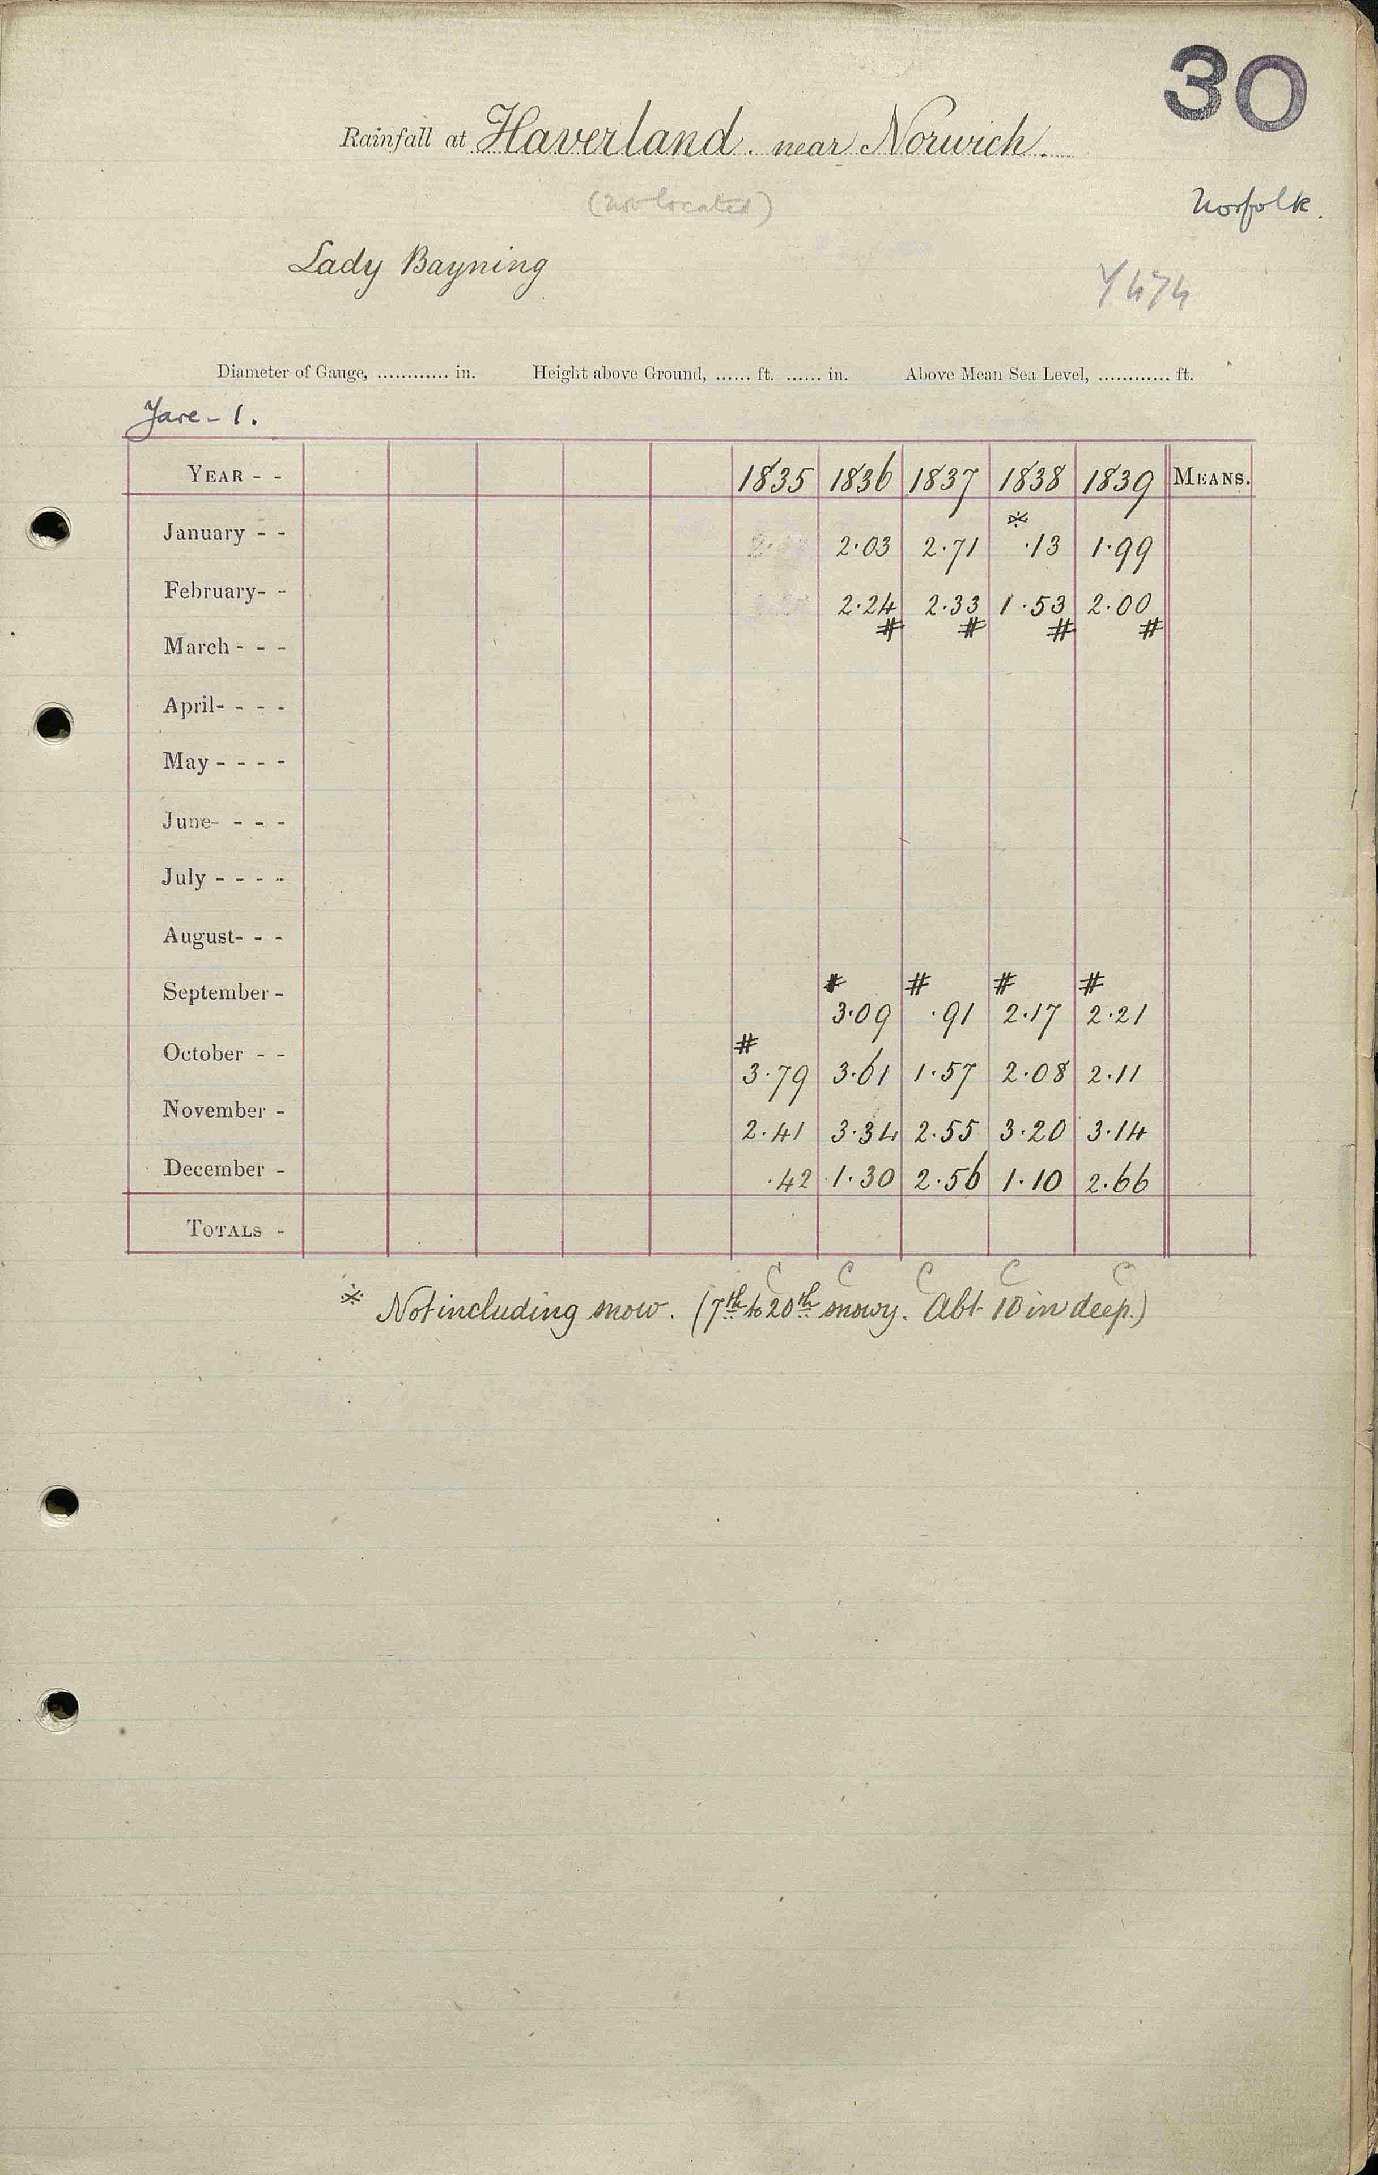 30
Rainfall at Haverland near Norwich.
(not located)
Norfolk.
Lady Bayning
Y474
Diameter of Gauge, ............ in. Height above Ground, ...... ft. ...... in. Above Mean Sea Level, ............ ft.
Yare - 1.
YEAR - - 1835 1836 1837 1838 1839 MEANS.
※
January - - 2.03 2.71 .13 1.99
February- - 2.24 2.33 1.53 2.00
# # # #
March - - -
April- - - -
May - - - -
June- - - -
July - - - -
August- - -
# # # #
September - 3.09 .91 2.17 2.21
#
October - - 3.79 3.61 1.57 2.08 2.11
November - 2.41 3.34 2.55 3.20 3.14
December - .42 1.30 2.56 1.10 2.66
TOTALS -
C C C C C
※ Not including snow. (7th to 20th snowy. Abt 10 in deep.)